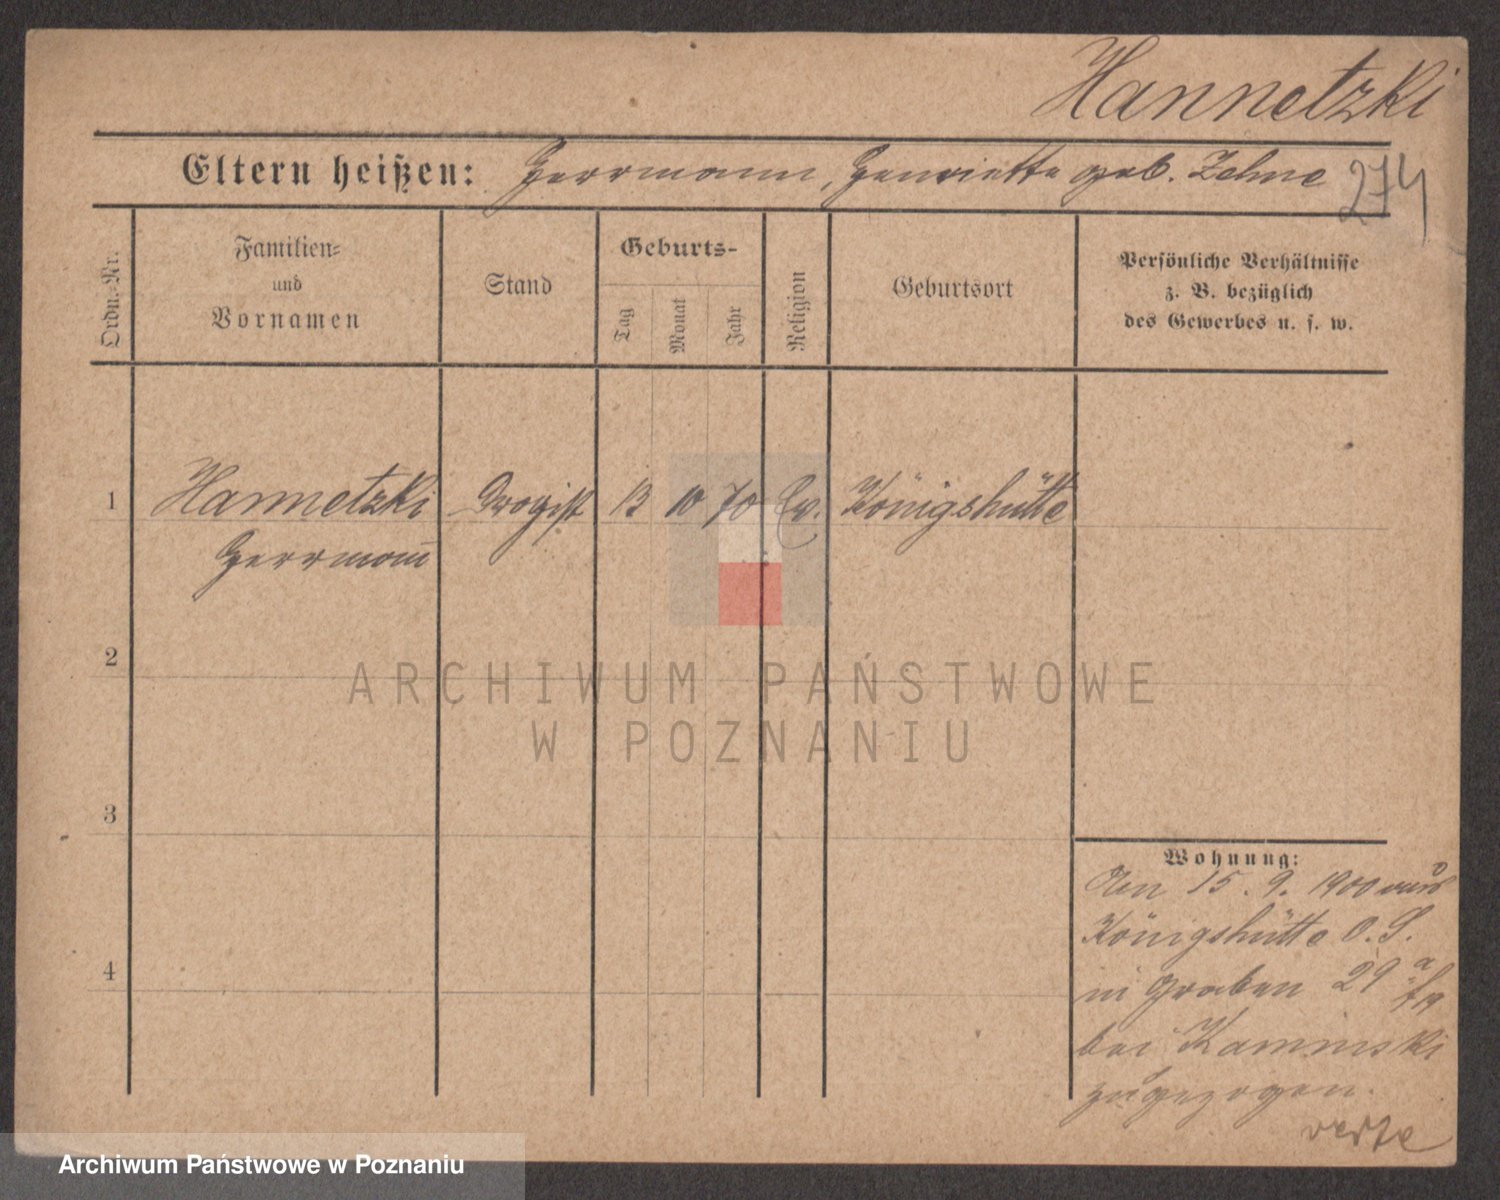 Hannetzki
Eltern heißen: Herrmann, Henriette geb. Zehne
274
Ordn.-Nr.
Familien-
und
Vornamen
Stand
Geburts-
Tag
Monat
Jahr
Religion
Geburtsort
Persönliche Verhältnisse
z. B. bezüglich
des Gewerbes u. s. w.
1 Hannetzki Drogist 13 10 70 Ev. Königshütte
Herrmann
2
3
4
Wohnung:
Den 15. 9. 1900 aus
Königshütte O. S.
in Graben 29 a
bei Kaminski
zugezogen.
verte
ARCHIWUM PAŃSTWOWE
W POZNANIU
Archiwum Państwowe w Poznaniu